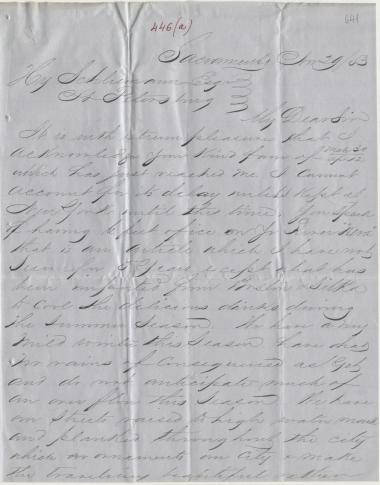 446(a)
641
Sacramento Nov 9/63
Hy Schliemann Esqr
St Petersburg
My Dear Sir
It is with extreem pleasure that I
acknowledge your kind favor of
which has just reached me I cannot
account for its delay unless kept at
New York until this time. You speak
of having kept office on
that is an article which I have not
seen for 5 years, except what has
been imported from & Sitka
to cool the delicious drinks during
the Summer Season. We have a very
mild winter this season have had
no rains of consequence as yet
and do not anticipate much of
an over flow this season We have
our streets raised to high water mark
and planked throughout the city
which is ornaments our City & makes
the traveling beautiful